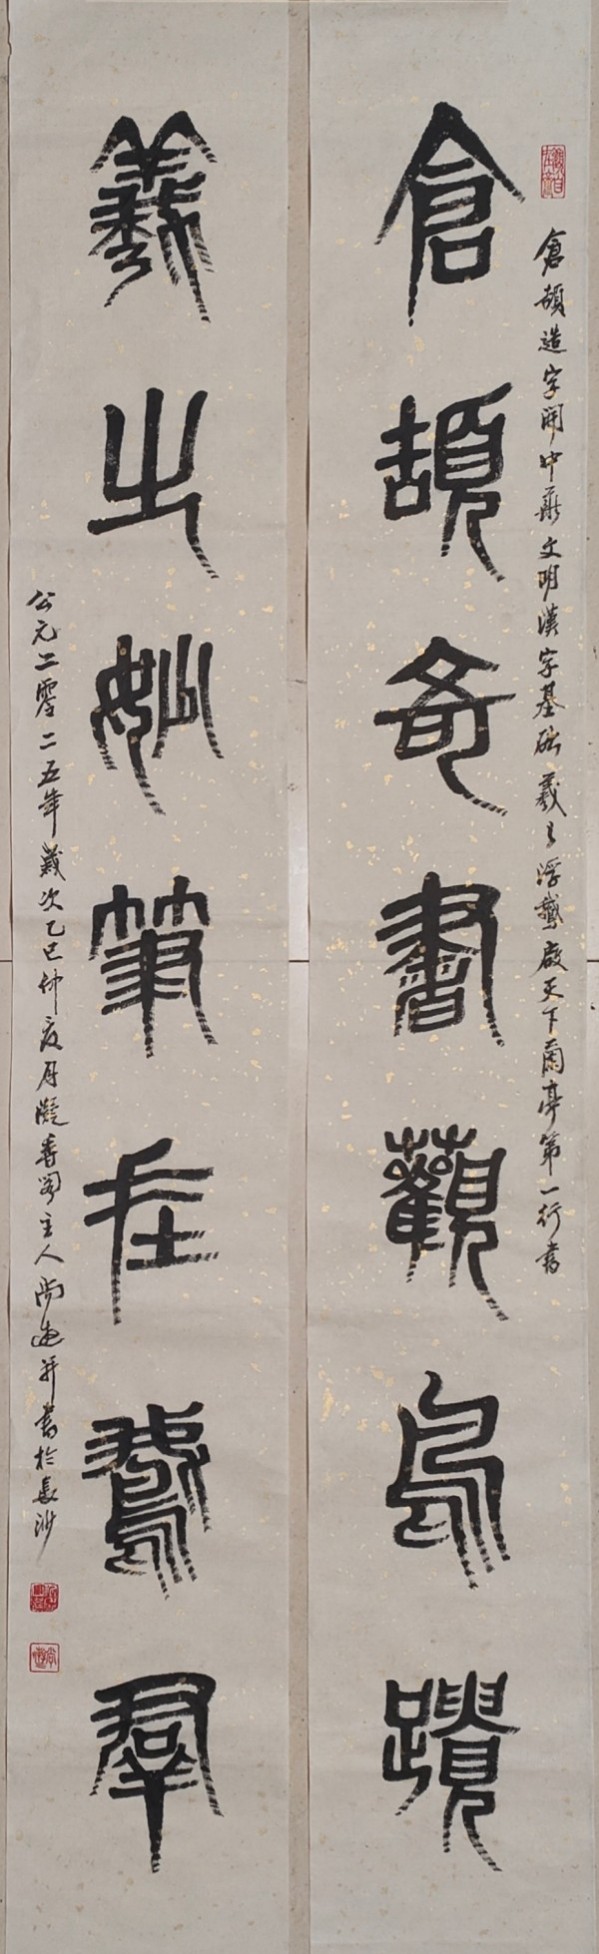 倉頡造字開中華文明漢字基礎羲之浮鵞啟天下蘭亭第一行書
倉頡奇書觀鳥蹟
羲之妙筆在鵞羣
公元二零二五年歲次乙巳仲夏月凝香閣主人尚并書於長沙